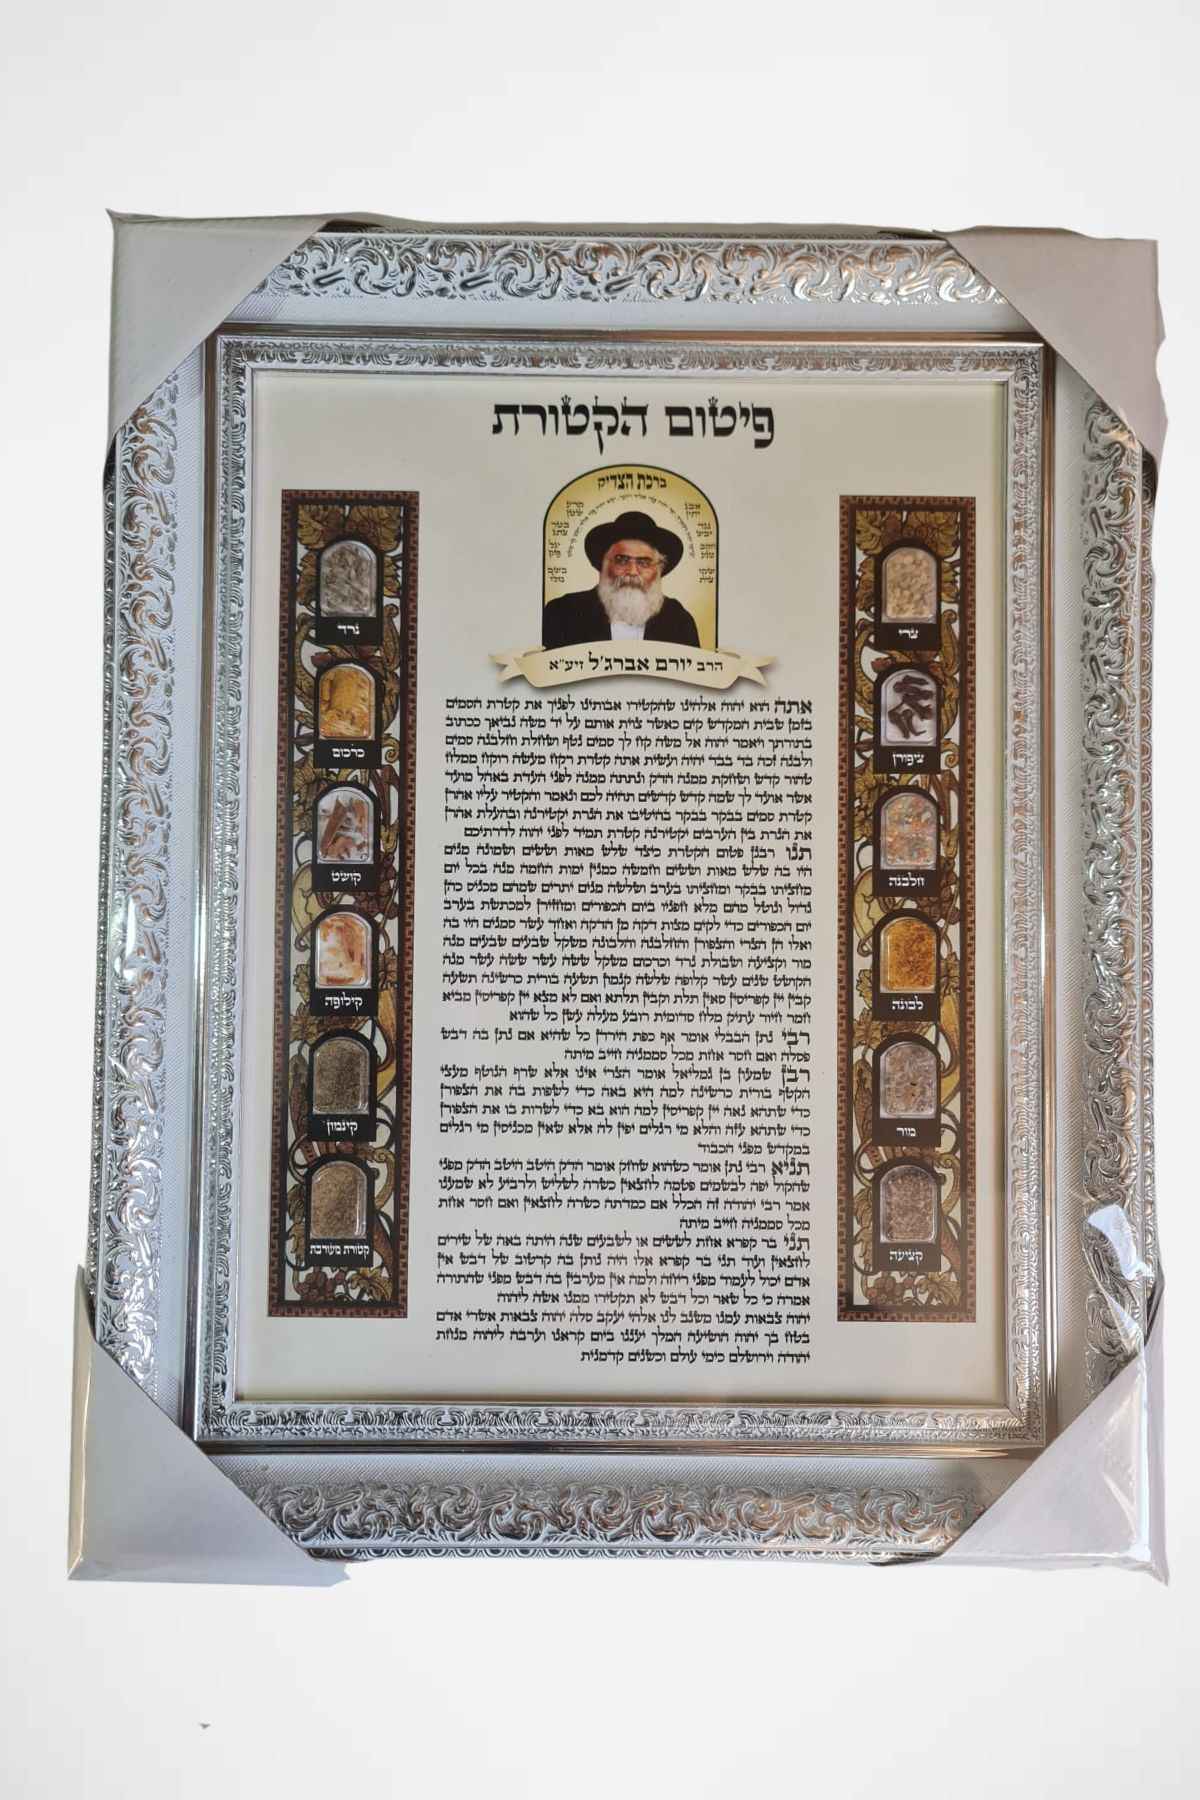 פיטום הקטורת
ברכת הצדיק
קרע
שטן
נגד
יכש
בטר
צתג
חקב
טנע
יגל
פזק
שקו
צית
הרב יורם אברג'ל זיע"א
אתה הוא יהוה אלהינו שהקטירו אבותינו לפניך את קטרת הסמים
בזמן שבית המקדש קים כאשר צוית אותם על יד משה נביאך ככתוב
בתורתך ויאמר יהוה אל משה קח לך סמים נטף ושחלת וחלבנה סמים
ולבנה זכה בד בבד יהיה ועשית אתה קטרת רקח מעשה רוקח ממלח
טהור קדש ושחקת ממנה הדק ונתתה ממנה לפני העדת באהל מועד
אשר אועד לך שמה קדש קדשים תהיה לכם ונאמר והקטיר עליו אהרן
קטרת סמים בבקר בבקר בהיטיבו את הנרת יקטירנה ובהעלת אהרן
את הנרת בין הערבים יקטירנה קטרת תמיד לפני יהוה לדרתיכם
תנו רבנן פטום הקטרת כיצד שלש מאות וששים ושמונה מנים
היו בה שלש מאות וששים וחמשה כמנין ימות החמה מנה בכל יום
מחציתו בבקר ומחציתו בערב ושלשה מנים יתרים שמהם מכניס כהן
גדול ונוטל מהם מלא חפניו ביום הכפורים ומחזירן למכתשת בערב
יום הכפורים כדי לקים מצות דקה מן הדקה ואחד עשר סמנים היו בה
ואלו הן הצרי והצפורן והחלבנה והלבונה משקל שבעים שבעים מנה
מור וקציעה ושבולת נרד וכרכום משקל ששה עשר ששה עשר מנה
הקושט שנים עשר קלופה שלשה קנמון תשעה בורית כרשינה תשעה
קבין יין קפריסין סאין תלת וקבין תלתא ואם לא מצא יין קפריסין מביא
חמר חיור עתיק מלח סדומית רובע מעלה עשן כל שהוא
רבי נתן הבבלי אומר אף כפת הירדן כל שהיא אם נתן בה דבש
פסלה ואם חסר אחת מכל סממניה חייב מיתה
רבן שמעון בן גמליאל אומר הצרי אינו אלא שרף הנוטף מעצי
הקטף בורית כרשינה למה היא באה כדי לשפות בה את הצפורן
כדי שתהא נאה יין קפריסין למה הוא בא כדי לשרות בו את הצפורן
כדי שתהא עזה והלא מי רגלים יפין לה אלא שאין מכניסין מי רגלים
במקדש מפני הכבוד
תניא רבי נתן אומר כשהוא שוחק אומר הדק היטב היטב הדק מפני
שהקול יפה לבשמים פטמה לחצאין כשרה לשליש ולרביע לא שמענו
אמר רבי יהודה זה הכלל אם כמדתה כשרה לחצאין ואם חסר אחת
מכל סממניה חייב מיתה
תני בר קפרא אחת לששים או לשבעים שנה היתה באה של שירים
לחצאין ועוד תני בר קפרא אלו היה נותן בה קרטוב של דבש אין
אדם יכול לעמוד מפני ריחה ולמה אין מערבין בה דבש מפני שהתורה
אמרה כי כל שאר וכל דבש לא תקטירו ממנו אשה ליהוה
יהוה צבאות עמנו משגב לנו אלהי יעקב סלה יהוה צבאות אשרי אדם
בטח בך יהוה הושיעה המלך יעננו ביום קראנו וערבה ליהוה מנחת
יהודה וירושלם כימי עולם וכשנים קדמנית
צרי
ציפורן
חלבנה
לבונה
מור
קציעה
נרד
כרכום
קושט
קילופה
קינמון
קטורת מעורבת